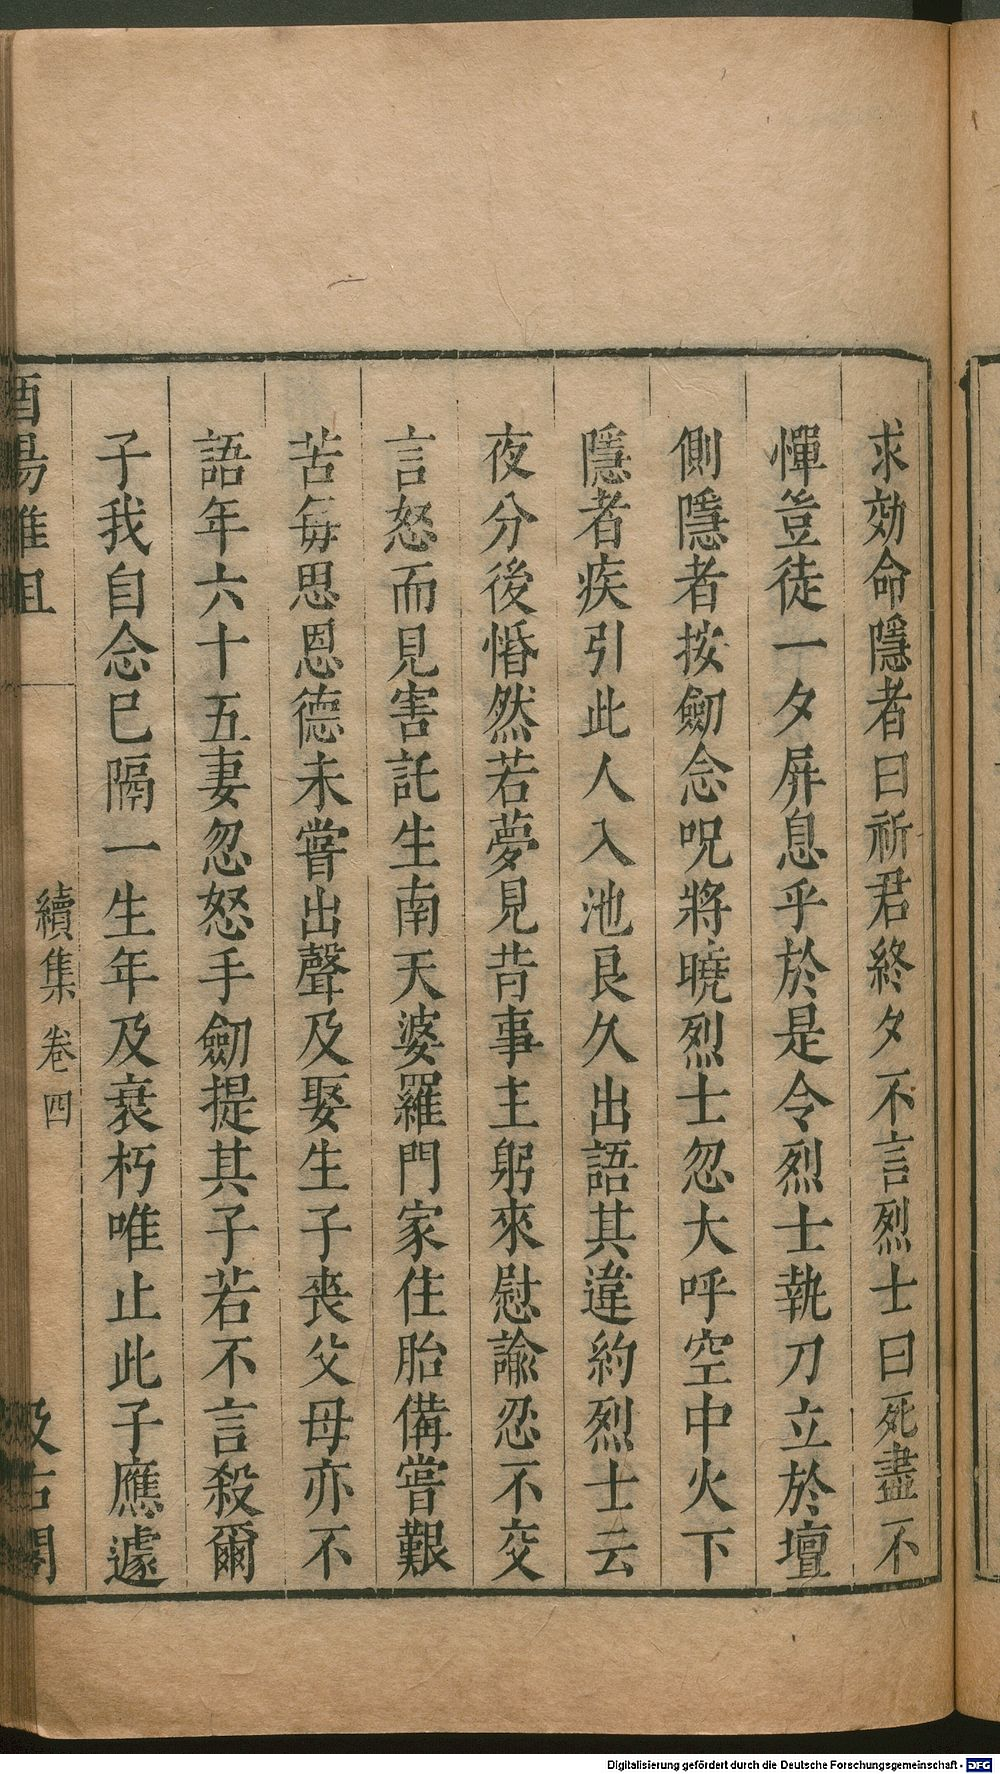 求効命隱者曰祈君終夕不言烈士曰死盡不
憚豈徒一夕屏息乎於是令烈士執刀立於壇
側隱者按劒念呪將曉烈士忽大呼空中火下
隱者疾引此人入池良久出語其違約烈士云
夜分後惛然若夢見昔事主躬來慰諭忍不交
言怒而見害託生南天婆羅門家住胎備嘗艱
苦每思恩德未嘗出聲及娶生子喪父母亦不
語年六十五妻忽怒手劒提其子若不言殺爾
子我自念已隔一生年及衰朽唯止此子應遽
酉陽雜俎
續集 卷四
汲古閣
Digitalisierung gefördert durch die Deutsche Forschungsgemeinschaft - DFG